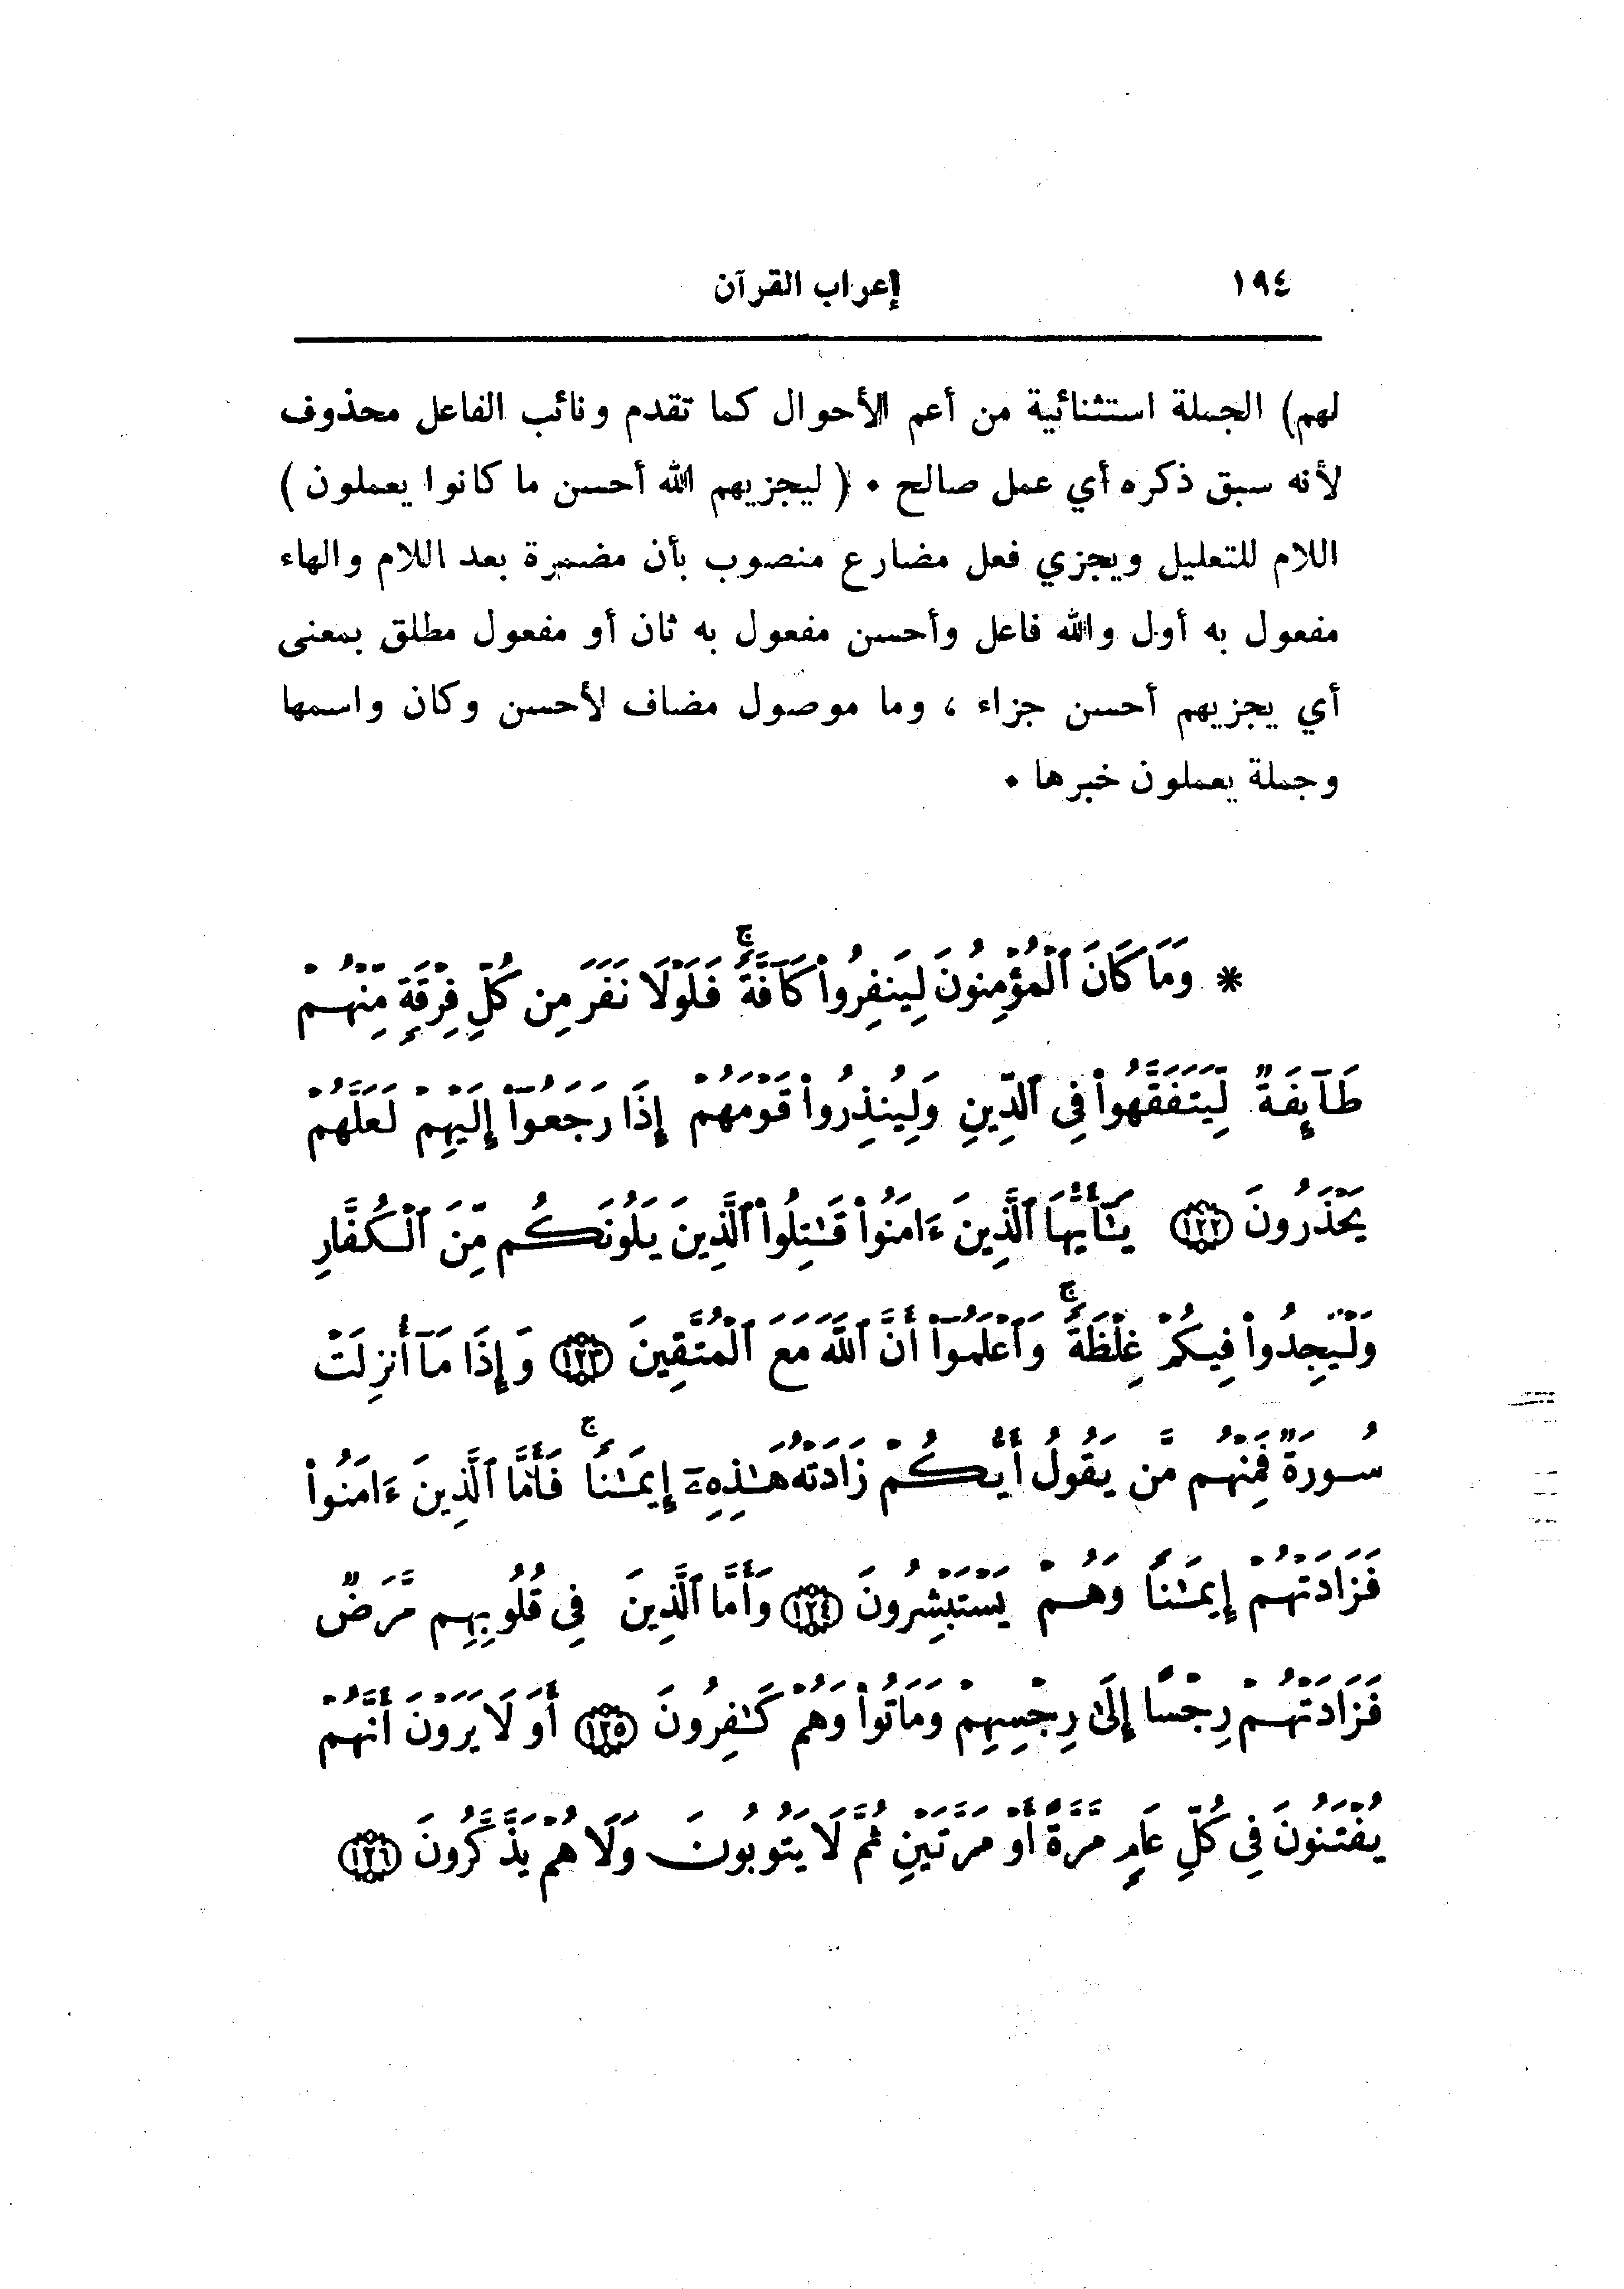 ١٩٤ إعراب القرآن
لهم) الجملة استثنائية من أعم الأحوال كما تقدم ونائب الفاعل محذوف
لأنه سبق ذكره أي عمل صالح ٠ ( ليجزيهم الله أحسن ما كانوا يعملون )
اللام للتعليل ويجزي فعل مضارع منصوب بأن مضمرة بعد اللام والهاء
مفعول به أول والله فاعل وأحسن مفعول به ثان أو مفعول مطلق بمعنى
أي يجزيهم أحسن جزاء ، وما موصول مضاف لأحسن وكان واسمها
وجملة يعملون خبرها ٠
* وَمَا كَانَ ٱلْمُؤْمِنُونَ لِيَنفِرُوا۟ كَآفَّةً ۚ فَلَوْلَا نَفَرَ مِن كُلِّ فِرْقَةٍ مِّنْهُمْ
طَآئِفَةٌ لِّيَتَفَقَّهُوا۟ فِى ٱلدِّينِ وَلِيُنذِرُوا۟ قَوْمَهُمْ إِذَا رَجَعُوٓا۟ إِلَيْهِمْ لَعَلَّهُمْ
يَحْذَرُونَ ﴿١٢٢﴾ يَٰٓأَيُّهَا ٱلَّذِينَ ءَامَنُوا۟ قَٰتِلُوا۟ ٱلَّذِينَ يَلُونَكُم مِّنَ ٱلْكُفَّارِ
وَلْيَجِدُوا۟ فِيكُمْ غِلْظَةً ۚ وَٱعْلَمُوٓا۟ أَنَّ ٱللَّهَ مَعَ ٱلْمُتَّقِينَ ﴿١٢٣﴾ وَإِذَا مَآ أُنزِلَتْ
سُورَةٌ فَمِنْهُم مَّن يَقُولُ أَيُّكُمْ زَادَتْهُ هَٰذِهِۦٓ إِيمَٰنًا ۚ فَأَمَّا ٱلَّذِينَ ءَامَنُوا۟
فَزَادَتْهُمْ إِيمَٰنًا وَهُمْ يَسْتَبْشِرُونَ ﴿١٢٤﴾ وَأَمَّا ٱلَّذِينَ فِى قُلُوبِهِم مَّرَضٌ
فَزَادَتْهُمْ رِجْسًا إِلَىٰ رِجْسِهِمْ وَمَاتُوا۟ وَهُمْ كَٰفِرُونَ ﴿١٢٥﴾ أَوَلَا يَرَوْنَ أَنَّهُمْ
يُفْتَنُونَ فِى كُلِّ عَامٍ مَّرَّةً أَوْ مَرَّتَيْنِ ثُمَّ لَا يَتُوبُونَ وَلَا هُمْ يَذَّكَّرُونَ ﴿١٢٦﴾